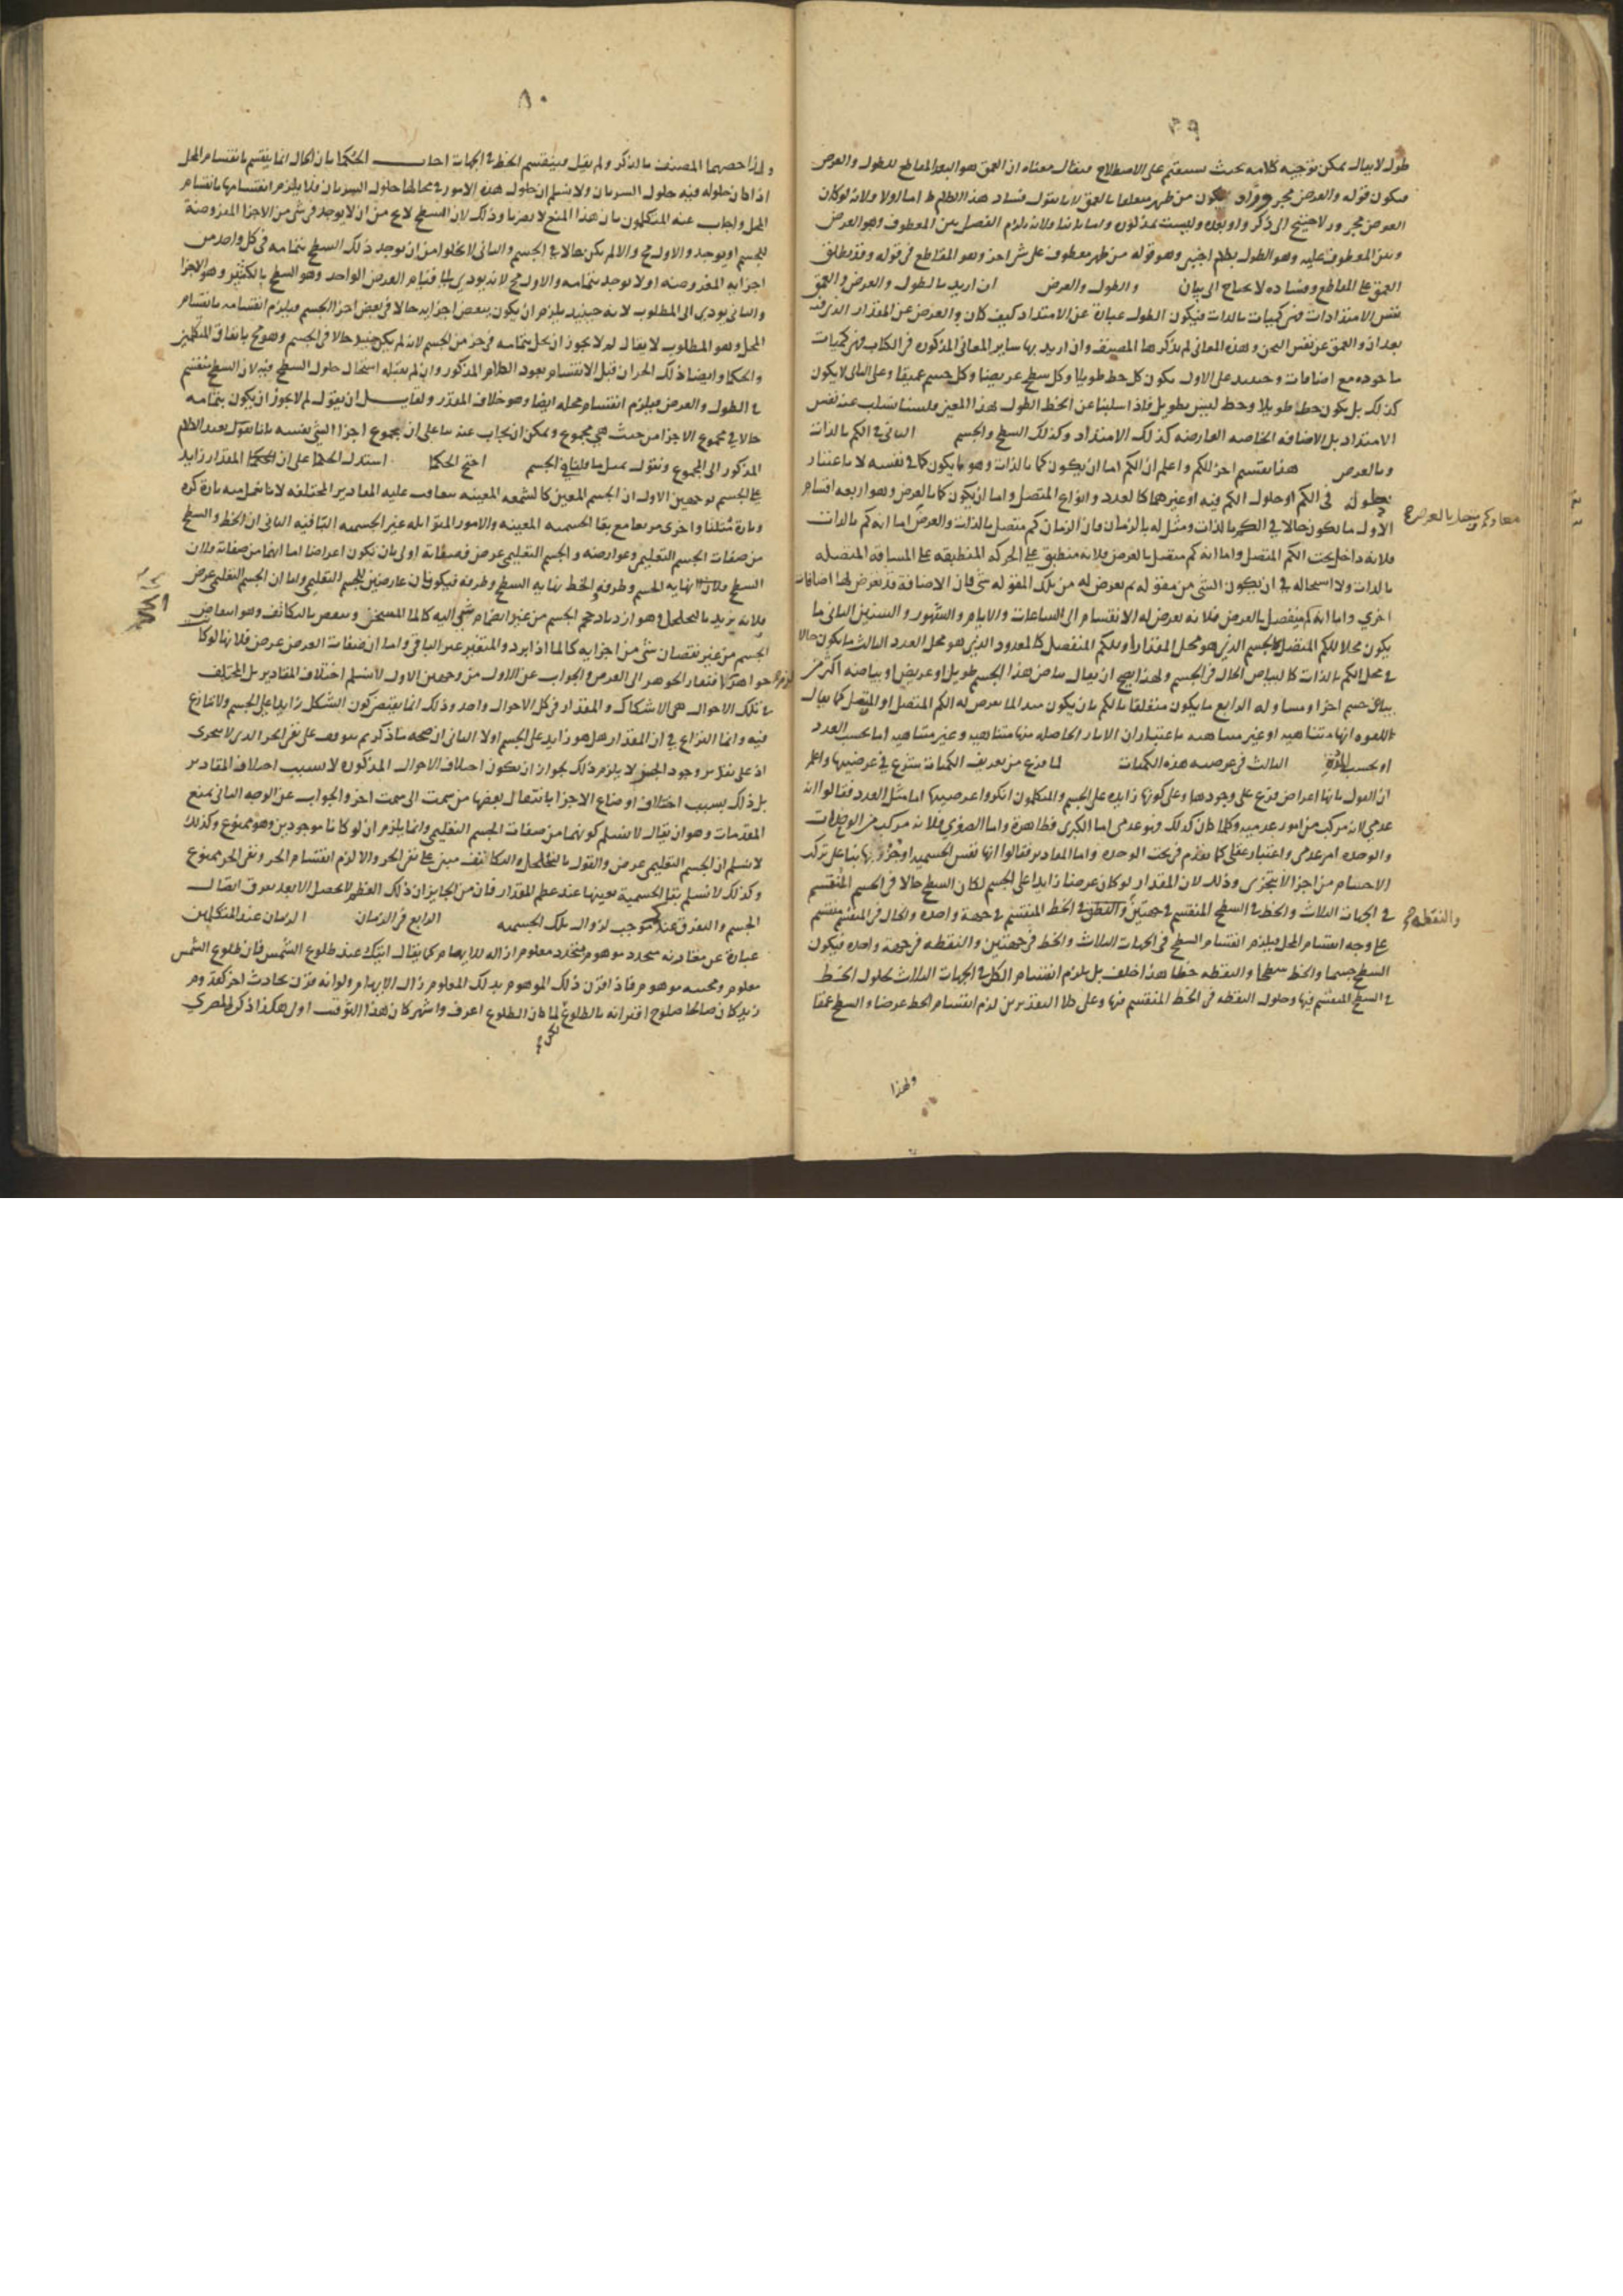 ٣٩
طول لا يقال يمكن توجيه كلامه بحيث يستقيم على الاصطلاح فيقال معناه ان العمق هو البعد المقاطع للطول والعرض
فيكون قوله والعرض مجرورا و يكون من ظهر متعلقا بالعمق لانا نقول فساد هذا الكلام ظ اما اولا فلانه لو كان
العرض مجرورا لاحتيج الى ذكر واو بعده وليست بمذكورة واما ثانيا فلانه يلزم الفصل بين المعطوف وهو العرض
وبين المعطوف عليه وهو الطول بكلام اجنبي وهو قوله من ظهر معطوف على شي اخر وهو المقاطع في قوله وقد يطلق
العمق على المقاطع وفساده لا يحتاج الى بيان والطول والعرض ان اريد بالطول والعرض والعمق
نفس الامتدادات فهي كميات بالذات فيكون الطول عبارة عن الامتداد كيف كان والعرض عن المقدار الذي فيه
بعدان والعمق عن نفس الثخن وهذه المعاني لم يذكرها المصنف وان اريد بها ساير المعاني المذكورة في الكتاب فهي كميات
ماخوذة مع اضافات وحينئذ على الاول يكون كل خط طويلا وكل سطح عريضا وكل جسم عميقا وعلى الثاني لا يكون
كذلك بل يكون خط طويلا وخط ليس بطويل فاذا سلبنا عن الخط الطول بهذا المعنى فلسنا نسلب عنه نفس
الامتداد بل الاضافة الخاصة العارضة كذلك الامتداد وكذلك السطح والجسم الثاني في الكم بالذات
وبالعرض هذا تقسيم اخر للكم واعلم ان الكم اما ان يكون كما بالذات وهو ما يكون كما في نفسه لا باعتبار
حلوله في الكم او حلول الكم فيه او غيرهما كالعدد وانواع المتصل واما ان يكون كما بالعرض وهو اربعة اقسام
الاول ما يكون حالا في الكم بالذات ومثل له بالزمان فان الزمان كم متصل بالذات والعرض اما انه كم بالذات
فلانه داخل تحت الكم المتصل واما انه كم متصل بالعرض فلانه منطبق على الحركة المنطبقة على المسافة المتصلة
بالذات ولا استحالة في ان يكون الشي من مقولة ثم يعرض له من تلك المقولة شي فان الاضافة قد تعرض لها اضافات
اخرى واما انه كم منفصل بالعرض فلانه يعرض له الانقسام الى الساعات والايام والشهور والسنين الثاني ما
يكون محلا للكم المتصل كالجسم الذي هو محل المقدار او للكم المنفصل كالمعدود الذي هو محل العدد الثالث ما يكون حالا
في محل الكم بالذات كالبياض الحال في الجسم ولهذا يصح ان يقال بياض هذا الجسم طويل او عريض او بياضه اكثر من
بياض جسم اخر او مساو له الرابع ما يكون متعلقا بالكم بان يكون مبدا لما يعرض له الكم المتصل او المنفصل كما يقال
للقوة انها متناهية او غير متناهية باعتبار ان الاثار الحاصلة منها متناهية وغير متناهية اما بحسب العدد
او بحسب المدة الثالث في عرضية هذه الكميات لما فرغ من تعريف الكميات شرع في عرضيتها واعلم
ان القول بانها اعراض فرع على وجودها وعلى كونها زايدة على الجسم والمتكلمون انكروا عرضيتها اما مثل العدد فقالوا انه
عدمي لانه مركب من امور عدمية وكلما كان كذلك فهو عدمي اما الكبرى فظاهرة واما الصغرى فلانه مركب من الوحدات
والوحدة امر عدمي واعتبار عقلي كما تقدم في بحث الوحدة واما المقادير فقالوا انها نفس الجسمية او جزؤ بها بنا على تركب
الاجسام من اجزا لا يتجزى وذلك لان المقدار لو كان عرضا زايدا على الجسم لكان السطح حالا في الجسم المنقسم
في الجهات الثلاث والخط في السطح المنقسم في جهتين والنقطة في الخط المنقسم في جهة واحدة والحال في المنقسم منقسم
على وجه انقسام المحل فيلزم انقسام السطح في الجهات الثلاث والخط في جهتين والنقطة في جهة واحدة فيكون
السطح جسما والخط سطحا والنقطة خطا هذا خلف بل يلزم انقسام الكل في الجهات الثلاث لحلول الخط
في السطح المنقسم فيها وحلول النقطة في الخط المنقسم فيها وعلى كلا التقديرين لزم انقسام الخط عرضا والسطح عمقا
والنقطة
ولهذا
٨٠
ولهذا خصهما المصنف بالذكر ولم يقل فينقسم الخط في الجهات اجاب الحكما بان الحال انما ينقسم بانقسام المحل
اذا كان حلوله فيه حلول السريان ولا نسلم ان حلول هذه الامور في محالها حلول السريان فلا يلزم انقسامها بانقسام
المحل واجاب عنه المتكلمون بان هذا المنع لا يضرنا وذلك لان السطح لا يخ من ان لا يوجد في شي من الاجزا المفروضة
للجسم او يوجد والاول مح والا لم يكن حالا في الجسم والثاني لا يخلوا من ان يوجد ذلك السطح بتمامه في كل واحد من
اجزايه المفروضة او لا يوجد بتمامه والاول مح لانه يودي الى قيام العرض الواحد وهو السطح بالكثير وهو الاجزا
والثاني يودي الى المطلوب لانه حينئذ يلزم ان يكون ببعض اجزايه حالا في بعض اجزا الجسم فيلزم انقسامه بانقسام
المحل وهو المطلوب لا يقال لم لا يجوز ان يحل بتمامه في جزء من الجسم لانه لم يكن حينئذ حالا في الجسم وهو مح باتفاق المتكلمين
والحكما وايضا ذلك الجزء ان قبل الانقسام يعود الكلام المذكور وان لم يقبله استحال حلول السطح فيه لان السطح منقسم
في الطول والعرض فيلزم انقسام محله ايضا وهو خلاف المقدر ولقايل ان يقول لم لا يجوز ان يكون بتمامه
حالا في مجموع الاجزا من حيث هي مجموع ويمكن ان يجاب عنه بنا على ان مجموع اجزا الشي نفسه بانا نقول نعيد الكلام
المذكور الى المجموع ونقول بمثل ما قلنا في الجسم احتج الحكما استدل الحكما على ان المقدار زايد
على الجسم بوجهين الاول ان الجسم المعين كالشمعة المعينة تتعاقب عليه المقادير المختلفة لانا نجعل منه تارة كرة
وتارة مثلثا واخرى مربعا مع بقا الجسمية المعينة والامور المتبدلة غير الجسمية الباقية الثاني ان الخط والسطح
من صفات الجسم التعليمي وعوارضه والجسم التعليمي عرض فصفاته اولى بان يكون اعراضا اما انهما من صفاته فلان
السطح نهاية الجسم وطرفه والخط نهاية السطح وطرفه فيكونان عارضين للجسم التعليمي واما ان الجسم التعليمي عرض
فلانه يزيد بالتخلخل وهو ازدياد حجم الجسم من غير انضمام شي اليه كالماء المسخن وينقص بالتكاثف وهو انتقاص
الجسم من غير نقصان شي من اجزايه كالماء اذا برد والمتغير غير الباقي واما ان صفات العرض عرض فلانها لو كا
جواهر لزم افتقار الجوهر الى العرض والجواب عن الاول من وجهين الاول لا نسلم اختلاف المقادير بل المختلف
في تلك الاحوال هي الاشكال والمقدار في كل الاحوال واحد وذلك انما يقتضي كون الشكل زايدا على الجسم ولا نزاع
فيه وانما النزاع في ان المقدار هل هو زايد على الجسم او لا الثاني ان صحة ما ذكرتم يتوقف على نفي الجزء الذي لا يتجزى
اذ على تقدير وجود الجزء لا يلزم ذلك لجواز ان يكون اختلاف الاحوال المذكورة لا بسبب اختلاف المقادير
بل ذلك بسبب اختلاف اوضاع الاجزا بانتقال بعضها من سمت الى سمت اخر والجواب عن الوجه الثاني بمنع
المقدمات وهو ان يقال لا نسلم كونهما من صفات الجسم التعليمي وانما يلزم ان لو كانا موجودين وهو ممنوع وكذلك
لا نسلم ان الجسم التعليمي عرض والقول بالتخلخل والتكاثف مبني على نفي الجزء والا لزم انقسام الجزء ونفي الجزء ممنوع
وكذلك لا نسلم بقا الجسمية بعينها عند عظم المقدار فان من الجايز ان ذلك العظم لا يحصل الا بعد تفرق اتصال
الجسم والتفرق عندكم يوجب لزوال تلك الجسمية الرابع في الزمان الزمان عند المتكلمين
عبارة عن مقارنة متجدد موهوم لمتجدد معلوم ازالة للابهام كما يقال اتيك عند طلوع الشمس فان طلوع الشمس
معلوم ومجيئه موهوم فاذا قرن ذلك الموهوم بذلك المعلوم زال الابهام ولو انه قرن بحادث اخر كقدوم
زيد كان صالحا صلوح اقترانه بالطلوع لما كان الطلوع اعرف واشهر كان هذا التوقيت اولى هكذا ذكر
لكن